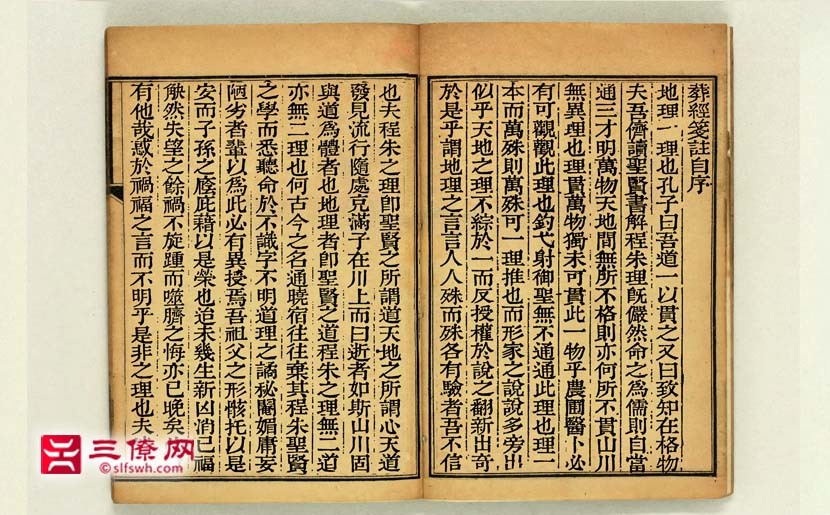 葬經箋註自序
地理一理也孔子曰吾道一以貫之又曰致知在格物
夫吾儕讀聖賢書解程朱理旣儼然命之爲儒則自當
通三才明萬物天地間無所不格則亦何所不貫山川
無異理也理貫萬物獨未可貫此一物乎農圃醫卜必
有可觀觀此理也釣弋射御聖無不通通此理也理一
本而萬殊則萬殊可一理推也而形家之說說多旁出
似乎天地之理不綜於一而反授權於說之翻新出奇
於是乎謂地理之言言人人殊而殊各有驗者吾不信
也夫程朱之理卽聖賢之所謂道天地之所謂心天道
發見流行隨處充滿子在川上而曰逝者如斯山川固
與道爲體者也地理者卽聖賢之道程朱之理無二道
亦無二理也何古今之名通曉宿往往棄其程朱聖賢
之學而悉聽命於不識字不明道理之譎秘闒媚庸妄
陋劣者輩以爲此必有異授焉吾祖父之形骸托以是
安而子孫之麻庇藉以是榮也迨未幾生新凶消已福
觖然失望之餘禍不旋踵而噬臍之悔亦已晚矣
有他哉惑於禍福之言而不明乎是非之理也夫
三僚网
slfswh.com